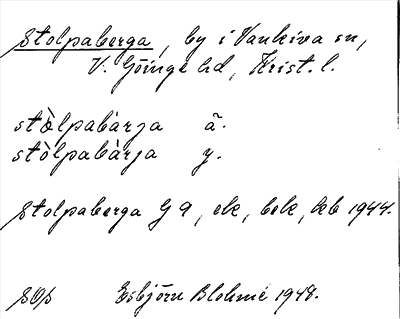 Stolpaberga, by i Vankiva sn,
V. Göinge hd, Krist. l.
stòlpabàrja ä.
stòlpabàrja y.
Stolpaberga G 9, ek, bek, hkb 1944.
SOS Esbjörn Blohmé 1948.